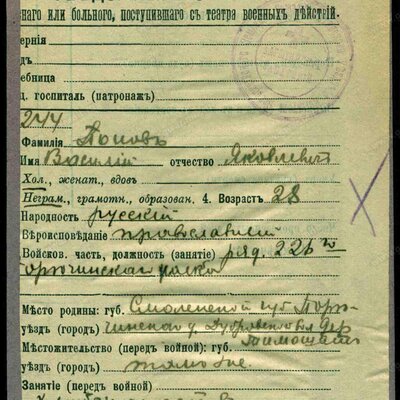 наго или больного, поступившаго съ театра военныхъ дѣйствій.
ернія
дъ
ебница
д. госпиталь (патронажъ)
244
Фамилія Поповъ
Имя Василій отчество Яковлевич
Хол., женат., вдовъ
Неграм., грамотн., образован. 4. Возрастъ 28
Народность русскій
Вѣроисповѣданіе православный
Войсков. часть, должность (занятіе) ряд. 226 го
полка
Мѣсто родины: губ. Смоленской губ Поре-
уѣздъ (городъ) чинской у. Дубровской вл дер
Мѣстожительство (передъ войной): губ.
уѣздъ (городъ) тамъ же.
Занятіе (передъ войной)